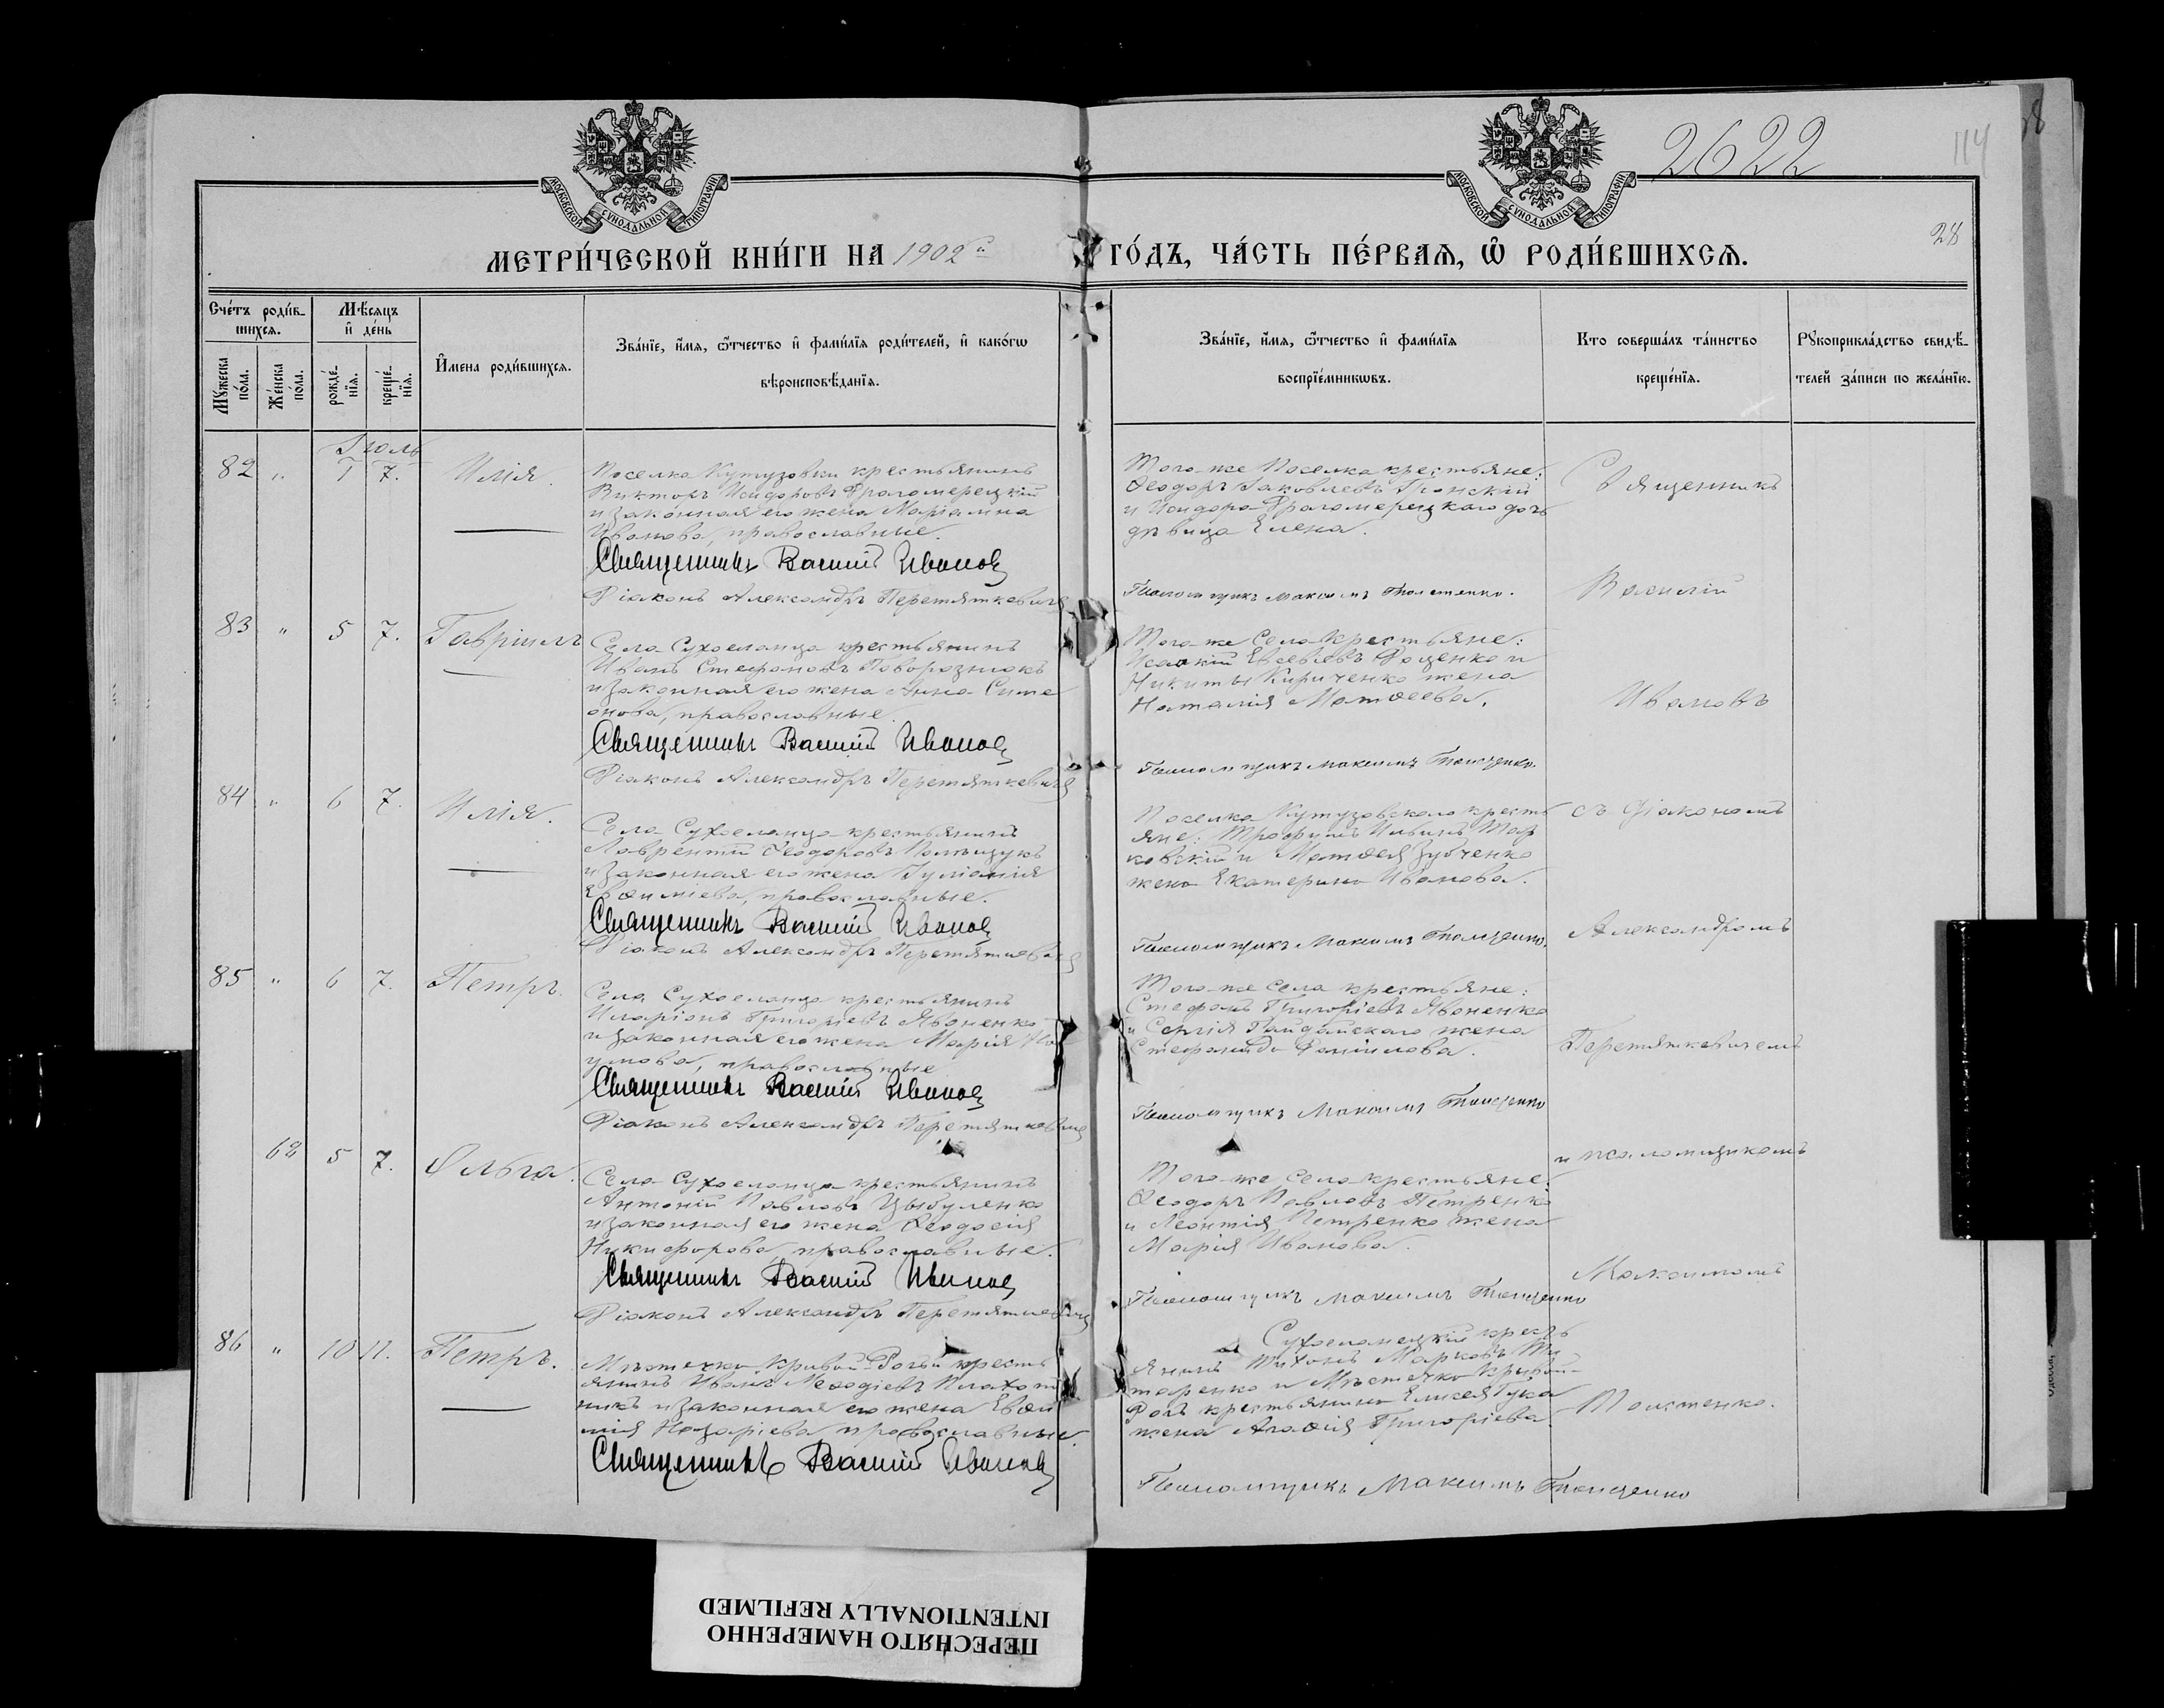 2622
114
28
МЕТРИ́ЧЕСКОЙ КНИ́ГИ НА 1902й
ГО́ДЪ, ЧА́СТЬ ПЕ́РВАЯ, Ѿ РОДИ́ВШИХСЯ.
МОСКОВСКОЙ СѴНОДАЛЬНОЙ ТИПОГРАФІИ
МОСКОВСКОЙ СѴНОДАЛЬНОЙ ТИПОГРАФІИ
Сче́тъ роди́в-
шихся.
Му́жеска по́ла.
Же́нска по́ла.
Мѣ́сяцъ
и҆ де́нь
рожде́-
нїя.
креще́-
нїя.
И҆мена роди́вшихся.
Зва́нїе, и҆́мя, ѻ҆́тчество и҆ фами́лїя роди́телей, и҆ како́гѡ
вѣроисповѣ́данїя.
Зва́нїе, и҆́мя, ѻ҆́тчество и҆ фами́лїя
воспрїе́мникѡвъ.
Кто соверша́лъ та́инство
креще́нїя.
Рꙋкоприкла́дство свидѣ́-
телей за́писи по жела́нїю.
Іюль
82 " 7.
Илія.
Поселка Кутузовки крестьянинъ
Викторъ Исидоровъ
и законная его жена Маріамна
Иванова, православные.
Священникъ Василій Иванов
Діаконъ Александръ Перетяткевичъ
Того-же Поселка крестьяне:
Ѳеодоръ Іаковлевъ
и Исидора дочь
дѣвица Елена.
Псаломщикъ Максимъ Толстенко.
Священникъ
Василій
83 " 5 7.
Гавріилъ
Села Сухоеланца крестьянинъ
Иванъ Стефановъ Поворознюкъ
и законная его жена Анна Симе
онова, православные.
Священникъ Василій Иванов
Діаконъ Александръ Перетяткевичъ
Того-же Села крестьяне:
Исаакій Евсевіевъ Доценко и
Никиты Кириченко жена
Наталія Матѳеева.
Псаломщикъ Максимъ Толстенко.
Ивановъ
84 " 6 7.
Илія.
Села Сухоеланца крестьянинъ
Лаврентій Ѳеодоровъ
и законная его жена Іуліанія
Евѳиміева, православные.
Священникъ Василій Иванов
Діаконъ Александръ Перетяткевичъ
Поселка Кутузовского кресть
яне: Трофимъ Ильинъ Мар
ковскій и Матѳея Зубченко
жена Екатерина Иванова.
Псаломщикъ Максимъ Толстенко.
съ діакономъ
Александромъ
85 " 6 7.
Петръ.
Села Сухоеланца крестьянинъ
Иларіонъ Григоріевъ Явоненко
и законная его жена Марія На
умова, православные
Священникъ Василій Иванов
Діаконъ Александръ Перетяткевичъ
Того-же села крестьяне:
Стефанъ Григоріевъ Явоненко
и Сергія Гайдайскаго жена
Стефанида Даніилова.
Псаломщикъ Максимъ Толстенко
Перетяткевичемъ
62 5 7.
Ольга.
Села Сухоеланца крестьянинъ
Антоній Павловъ Цыбуленко
и законная его жена Ѳеодосія
Никифорова, православные.
Священникъ Василій Иванов
Діаконъ Александръ Перетяткевичъ
Того-же села крестьяне:
Ѳеодоръ Павловъ Петренко
и Леонтія Петренко жена
Марія Иванова.
Псаломщикъ Максимъ Толстенко
и псаломщикомъ
Максимомъ
86 " 10 11.
Петръ.
Мѣстечка Кривой-Рогъ кресть
янинъ Иванъ Меѳодіевъ Плахот
никъ и законная его жена Евѳи
мія Назаріева православные.
Священникъ Василій Иванов
Сухоеланецкій кресть
янинъ Тихонъ Марковъ Ти
таренко и Мѣстечка Кривой-
Рогъ крестьянина Елисея Гука
жена Агаѳія Григоріева.
Псаломщикъ Максимъ Толстенко
Толстенко.
ПЕРЕСНЯТО НАМЕРЕННО
INTENTIONALLY REFILMED